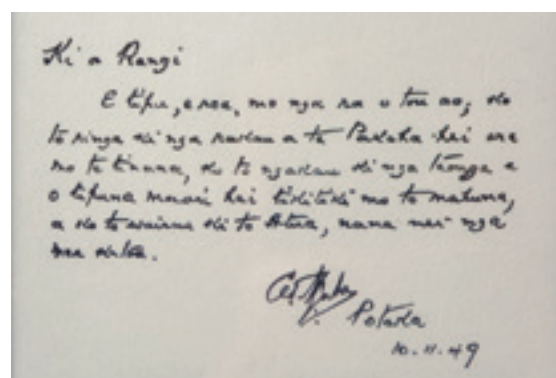 Ki a Rangi
E tipu, e rea, mo nga ra o tou ao; ko
to ringa ki nga rakau a te Pakeha hei ora
mo te tinana, ko to ngakau ki nga taonga a
o tipuna maori hei tikitiki mo to mahuna,
a ko to wairua ki to Atua, nana nei nga
mea katoa.
Potaka
10.11.49